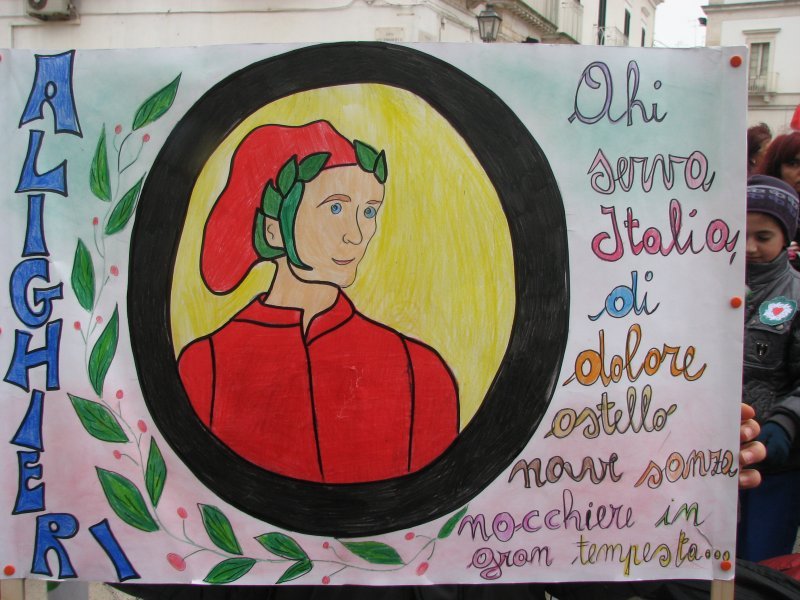 ALIGHIERI
Ahi
serva
Italia,
di
dolore
ostello
nave sanza
nocchiere in
gran tempesta...